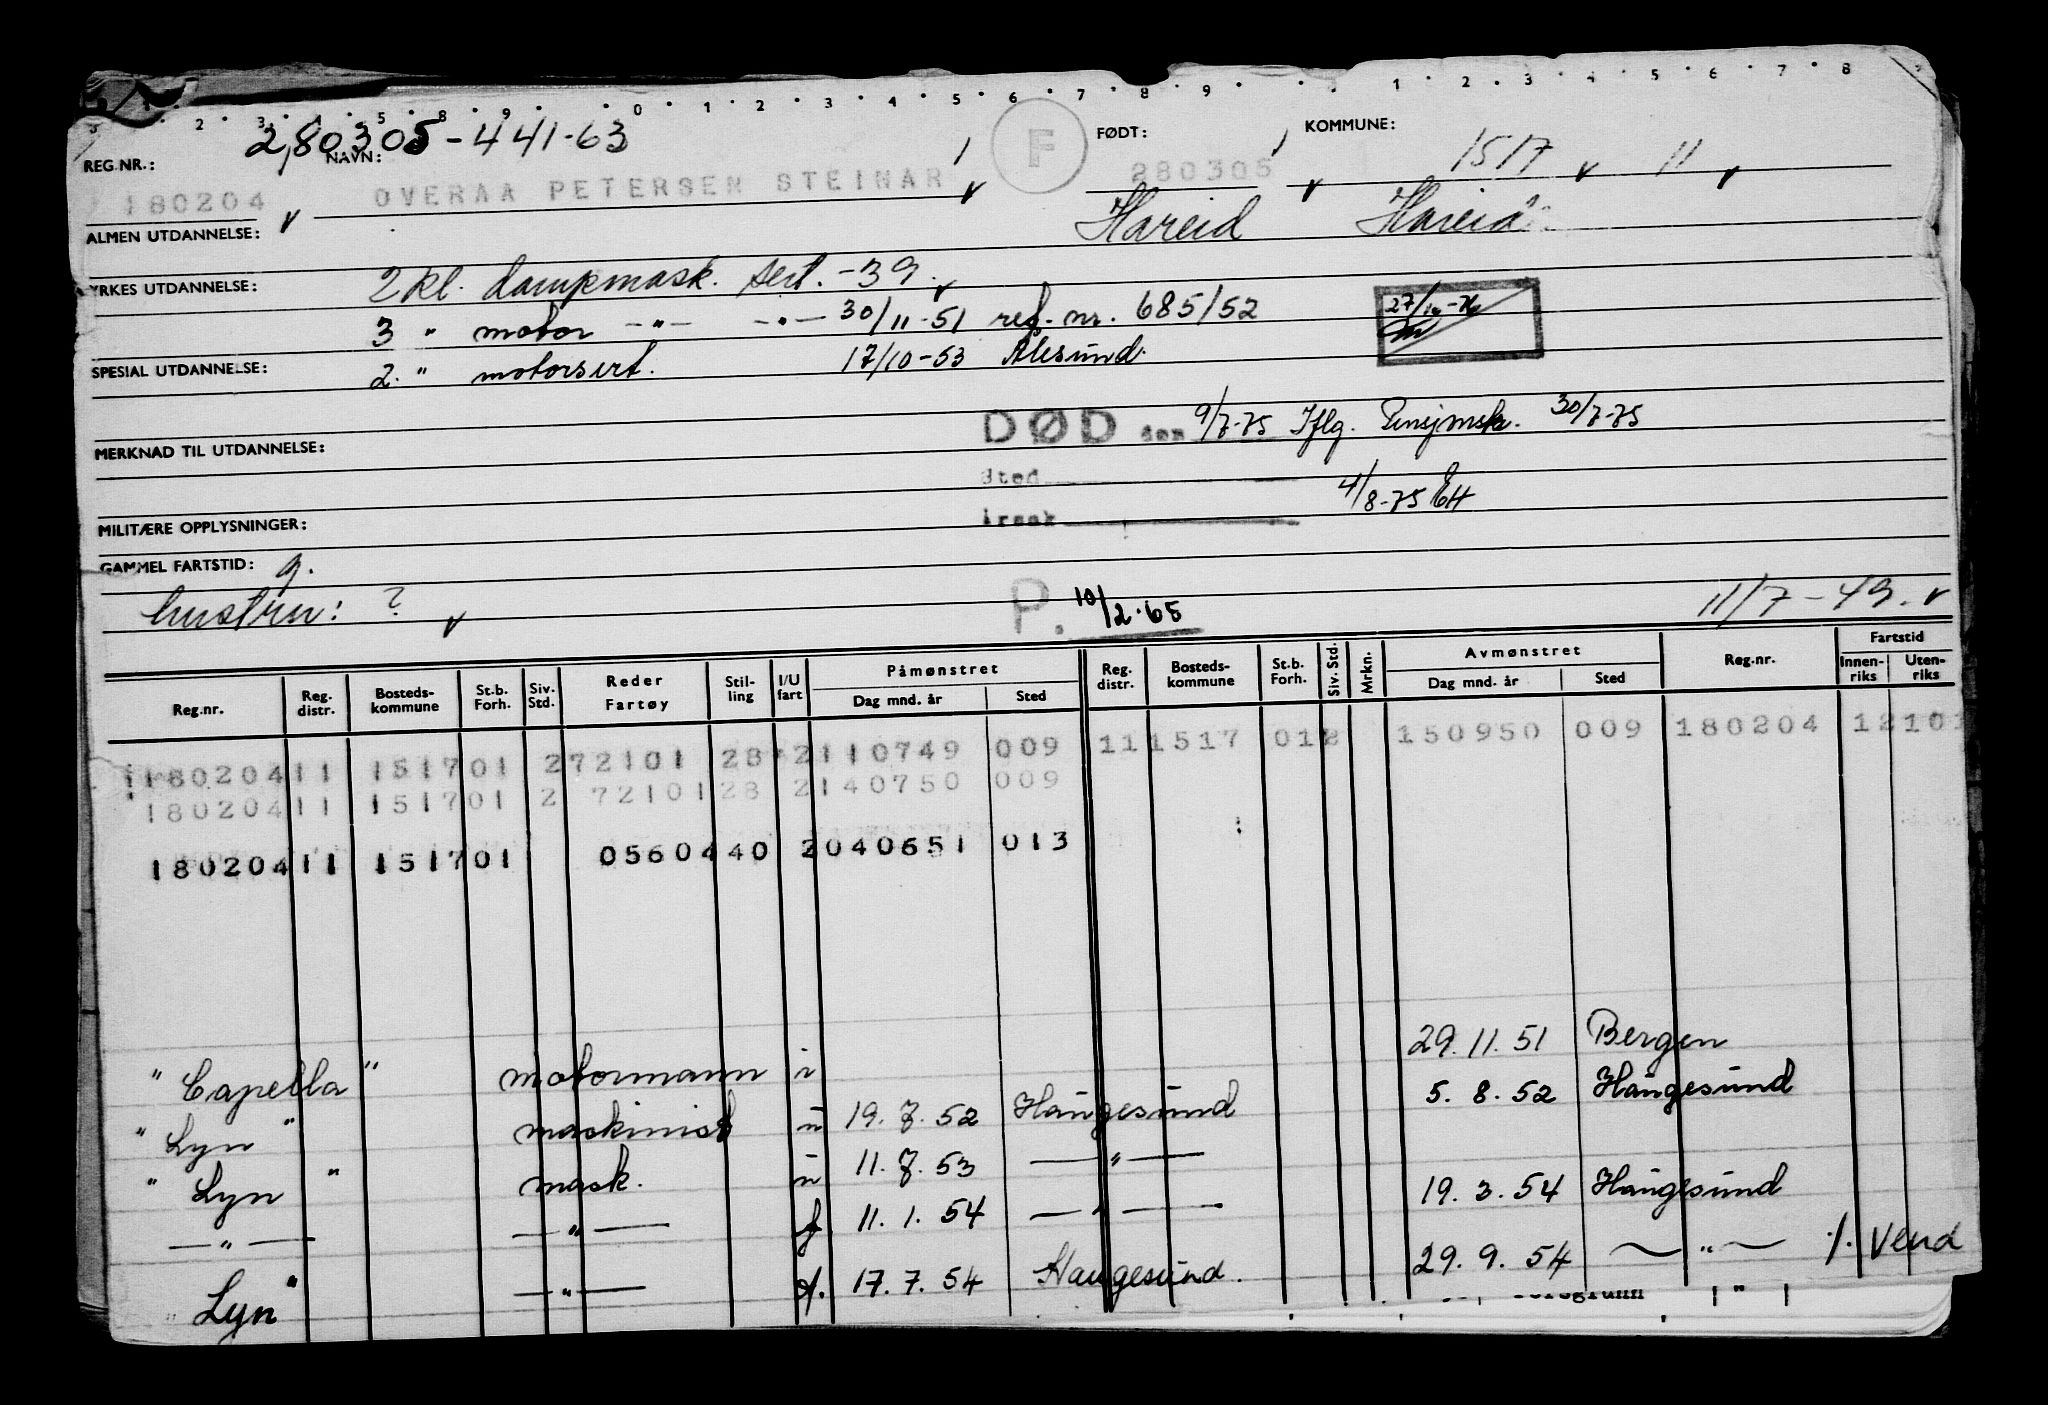 0 1 2 3 4 5 6 7 8 9 1 2 3 4 5 6 7 8
280305-441-63
REG.NR.: NAVN: F FØDT: KOMMUNE:
180204 OVERAA PETERSEN STEINAR 280305 1517 11
ALMEN UTDANNELSE: Hareid Hareid
YRKES UTDANNELSE: 2 kl. dampmask. sert. -39.
3 " motor -"- -"- 30/11-51 ref. nr. 685/52
SPESIAL UTDANNELSE: 2. " motorsert. 17/10-53 Ålesund.
DØD den 9/7-75 Iflg. Pensjmsk. 30/7-75
MERKNAD TIL UTDANNELSE:
Sted 4/8-75 EH
MILITÆRE OPPLYSNINGER: Årsak
GAMMEL FARTSTID: g.
hustru: ? P. 10/2-65 11/7-49.
Reg.nr. Reg. distr. Bosteds-kommune St.b. Forh. Siv. Std. Reder Fartøy Stil-ling I/U fart Påmønstret Dag mnd. år Sted Reg. distr. Bosteds-kommune St.b. Forh. Siv. Std. Mrkn. Avmønstret Dag mnd. år Sted Reg.nr. Fartstid Innen-riks Uten-riks
180204 11 1517 01 2 72101 28 2 110749 009 11 1517 01 2 150950 009 180204 12 101
180204 11 1517 01 2 72101 28 2 140750 009
180204 11 1517 01 05604 40 2 040651 013
29.11.51 Bergen
"Capella" motormann i
5.8.52 Haugesund
"Lyn" maskinist u 19.7.52 Haugesund
"Lyn" mask. u 11.7.53 —"—
19.3.54 Haugesund
—"— —"— f 11.1.54 —"—
29.9.54 —"— ./. Vend
"Lyn" —"— f. 17.7.54 Haugesund.